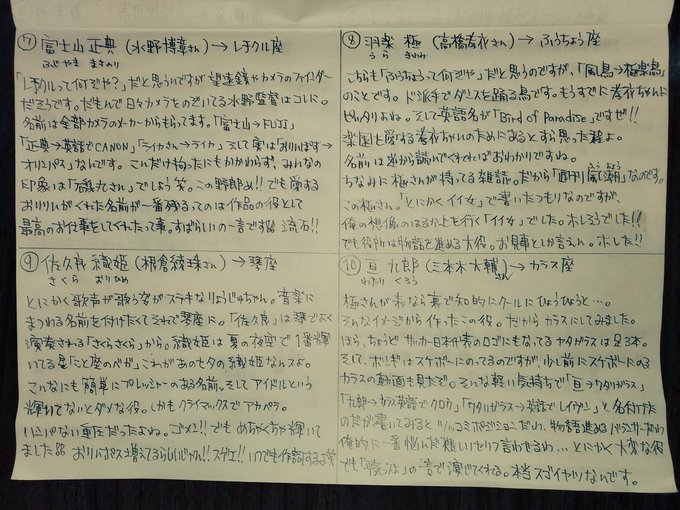 ⑦ 富士山 正典 (水野博章さん) → レチクル座
ふじやま まさのり
「レチクルって何ぞや?」だと思うんですが望遠鏡やカメラのファインダー
だそうです。だもんで日々カメラをのぞいてる水野監督はコレに。
名前は全部カメラのメーカーからもらってます。「富士山→FUJI」
「正典→英語でCANON」「ライカさん→ライカ」そして実は「おりんぽす→
オリンパス」なんです。こんだけ拘ったにもかかわらず、みんなの
印象は「でしょう笑。この野郎め!!でも愛する
おりりんがくれた名前が一番残るってのは作品の役として
最高のお仕事をしてくれたって事。すばらしいの一言です 流石!!
⑧ 羽楽 極 (高橋孝衣さん) → ふうちょう座
うら きわみ
こちらも「ふうちょうって何ぞや」だと思うのですが、「風鳥→極楽鳥」
のことです。ド派手でダンスを踊る鳥です。もうすでに孝衣ちゃんに
ピッタリよね。そして英語名が「Bird of Paradise」ですぜ!!
楽園を愛する孝衣ちゃんのためにあるとすら思った程よ。
名前は岩から端いてくればおわかりですね。
ちなみに極さんが持ってる雑誌。だから「週刊 風潮」なのです。
ふう ちょう
この極さん。「とにかくイイ女」で書いたつもりなのですが、
俺の想像のはるか上を行く「イイ女」でした。ホレるうでした!!
でも役所は物語を進める大役。お見事としか言えん。ホした!!
⑨ 佐久良 織姫 (根倉綾珠さん) → 琴座
さくら おりひめ
とにかく歌声が歌う姿がステキなりょうじゅちゃん。音楽に
まつわる名前を付けたくてそれで琴座に。「佐久良」は琴でよく
演奏される「さくらさくら」から。織姫にも夏の夜空で1番輝
いてる星「こと座のベガ」これがあの七夕の織姫なんスよ。
こんなにも簡単にプレッシャーのある名前。そしてアイドルという
輝いてないとダメな役。しかもクライマックスでアカペラ。
ハンパない重圧だったよね。ゴメン!!でもめちゃくちゃ輝いて
ました おりりんポス増えてるらしいじゃん!!スゲエ!!いつでも作詞するよ笑
⑩ 亘 九郎 (三本木大輔さん) → カラス座
わたり くろう
極さんが表なら裏で知的にクールにひょうひょうと…。
そんなイメージから作ったこの役。だからカラスにしてみました。
ほら、ちょうどサッカー日本代表のロゴにもなってるヤタガラスは足3本。
そして、ポルギはスケボーにのってるのですが、少し前にスケボーにのる
カラスの動画を見たで。そんな軽い気持ちで「亘→ワタリガラス」
「九郎→カラス英語でクロウ」「ワタリガラス→英語でレイヴン」と名付けた
のだが書いてみるとツッコミポジションだわ、物語進めるパッシャーだわ
俺的に一番悩んだ難しいセリフ言わせるわ…とにかく大変な役
でも「」の一言で演じてくれてる。本当スゴイヤツなんです。